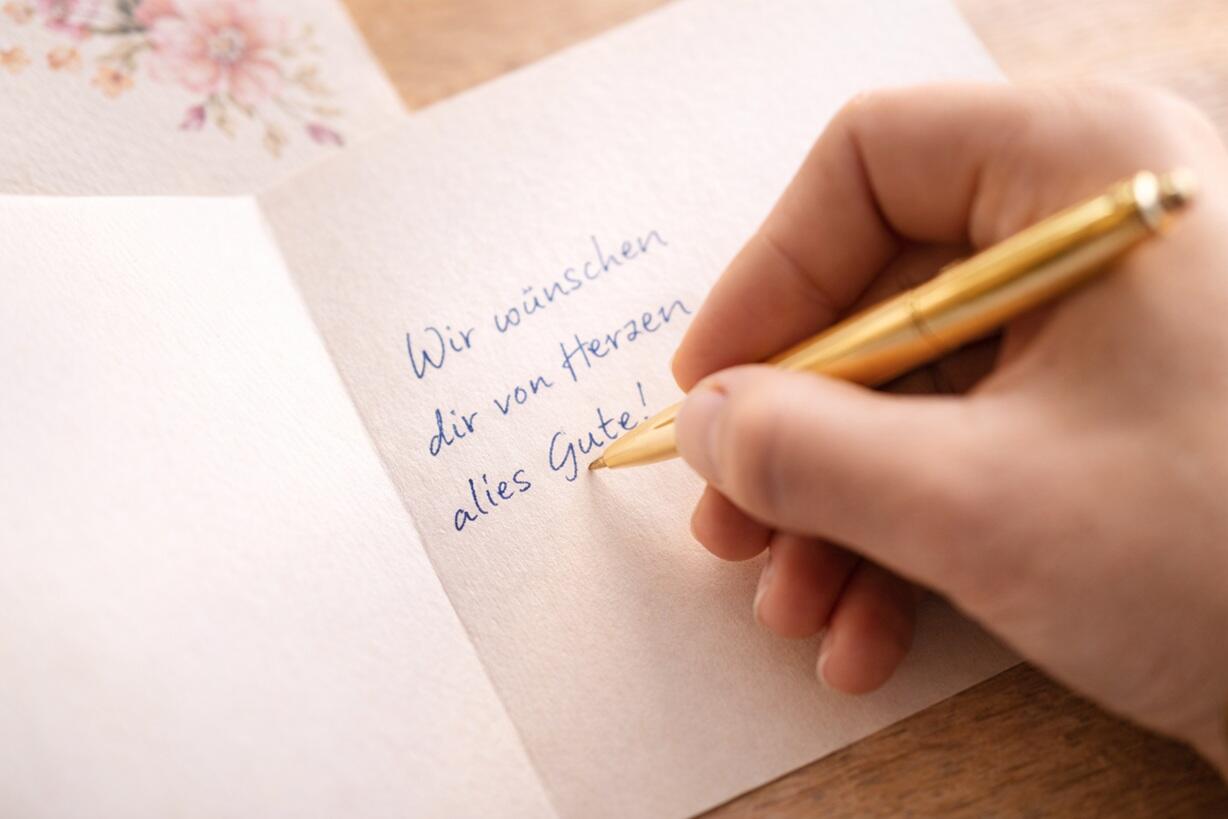 Wir wünschen
dir von Herzen
alies Gute!